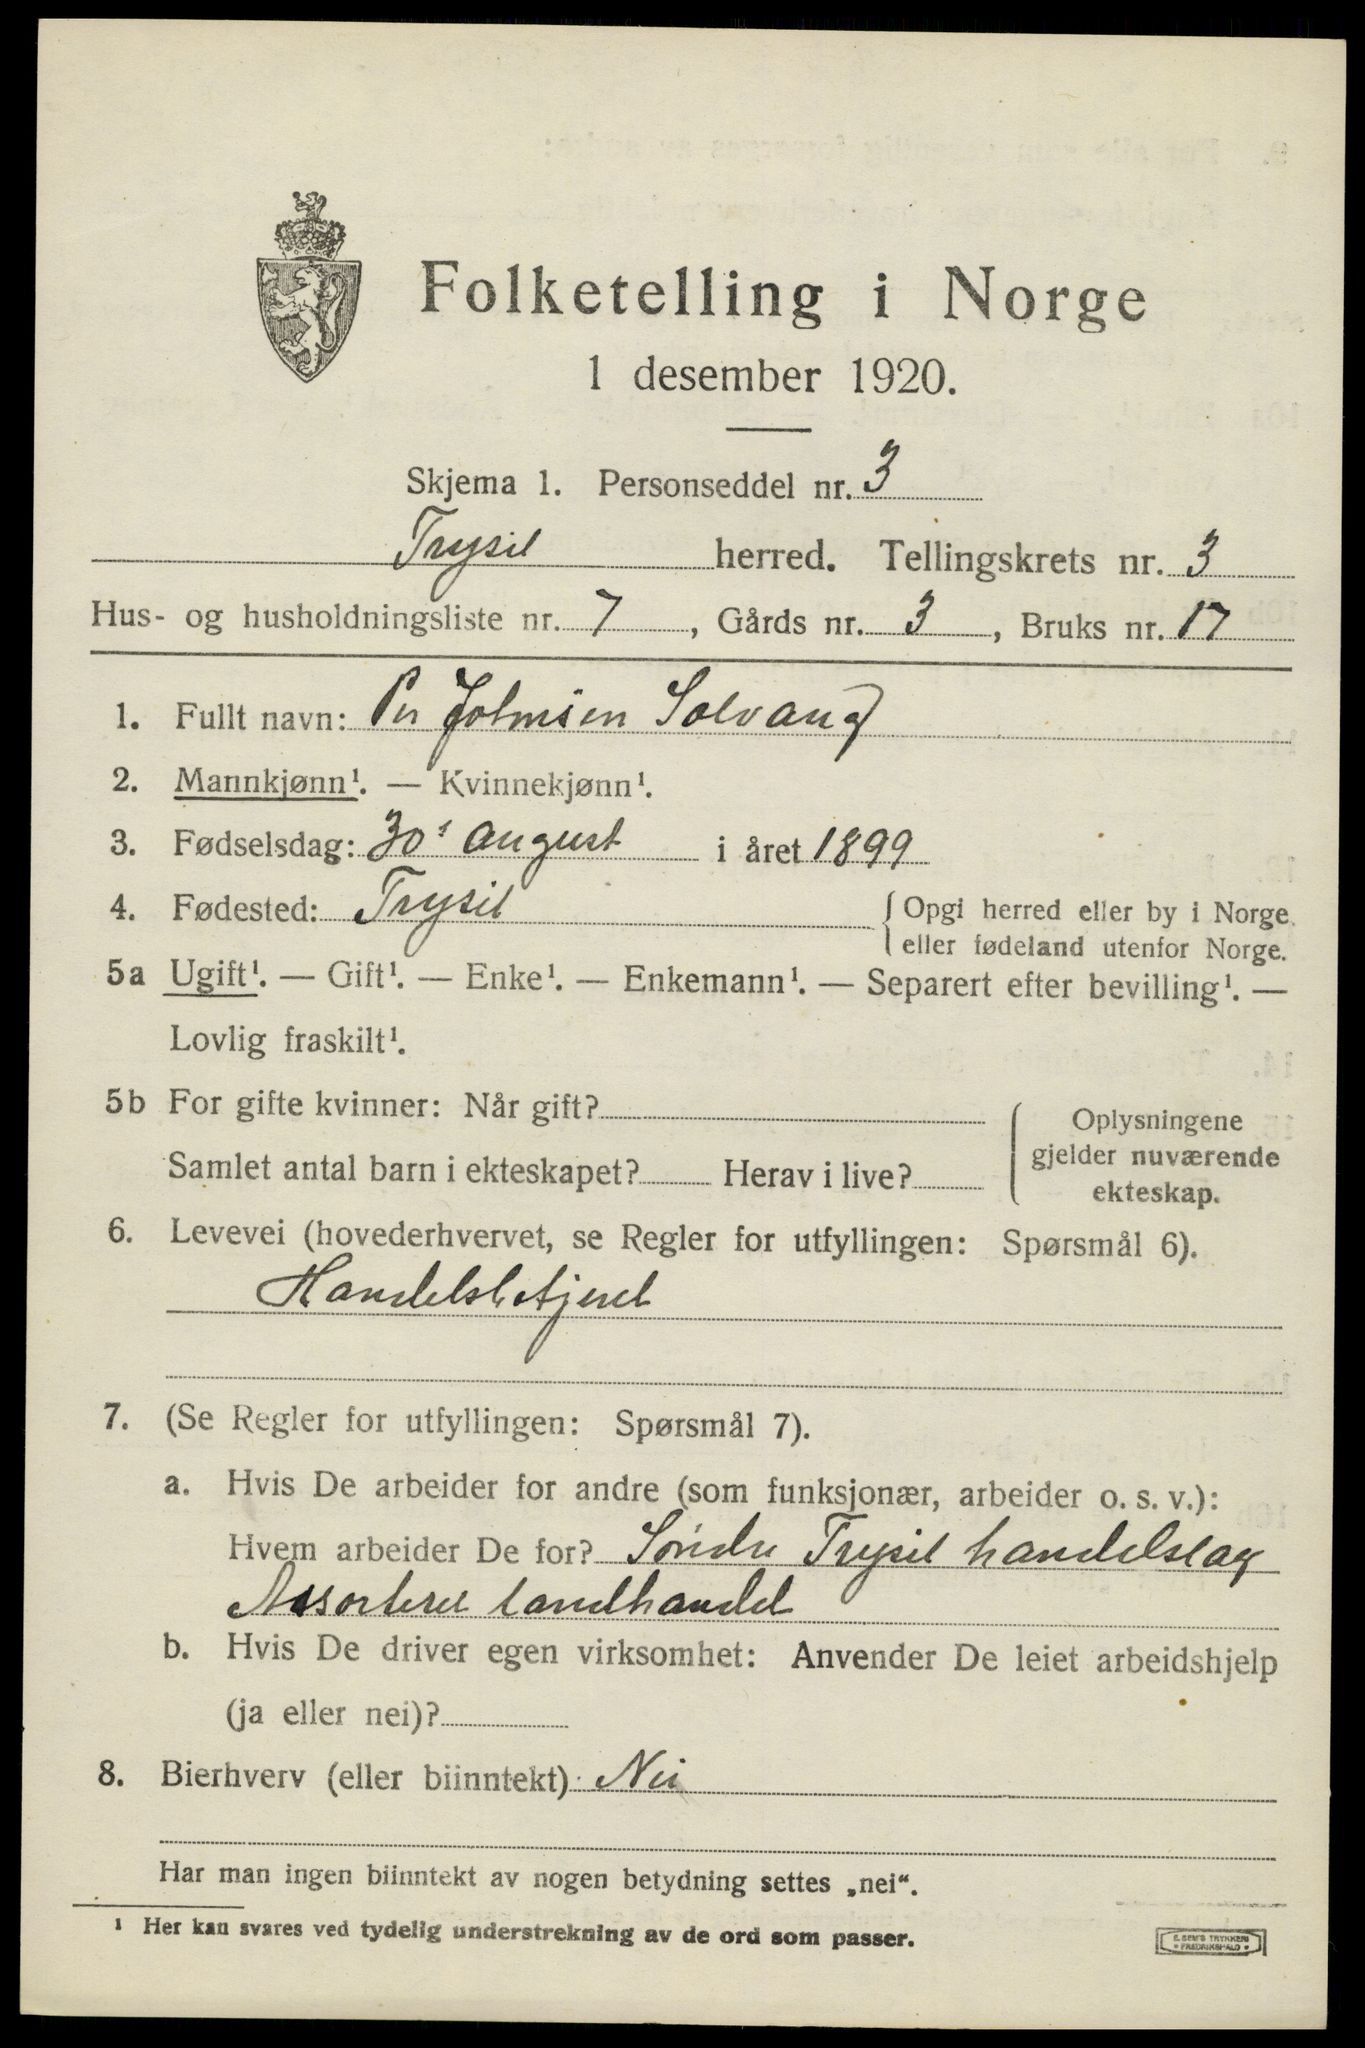 Folketelling i Norge
1 desember 1920.
Skjema 1. Personseddel nr. 3
Trysil herred. Tellingskrets nr. 3
Hus- og husholdningsliste nr. 7, Gårds nr. 3, Bruks nr. 17
1. Fullt navn: Per Johnsen Solvang
2. Mannkjønn¹. — Kvinnekjønn¹.
3. Fødselsdag: 30' august i året 1899
4. Fødested: Trysil { Opgi herred eller by i Norge
eller fødeland utenfor Norge.
5a Ugift¹. — Gift¹. — Enke¹. — Enkemann¹. — Separert efter bevilling¹. —
Lovlig fraskilt¹.
5b For gifte kvinner: Når gift?
Samlet antal barn i ekteskapet? Herav i live?
Oplysningene
gjelder nuværende
ekteskap.
6. Levevei (hovederhvervet, se Regler for utfyllingen: Spørsmål 6).
Handelsbetjent
7. (Se Regler for utfyllingen: Spørsmål 7).
a. Hvis De arbeider for andre (som funksjonær, arbeider o. s. v.):
Hvem arbeider De for? Søndre Trysil handelslag
Assorteret landhandel
b. Hvis De driver egen virksomhet: Anvender De leiet arbeidshjelp
(ja eller nei)?
8. Bierhverv (eller biinntekt): Nei
Har man ingen biinntekt av nogen betydning settes „nei“.
¹ Her kan svares ved tydelig understrekning av de ord som passer.
E. SEM'S TRYKKERI
• FREDRIKSHALD •